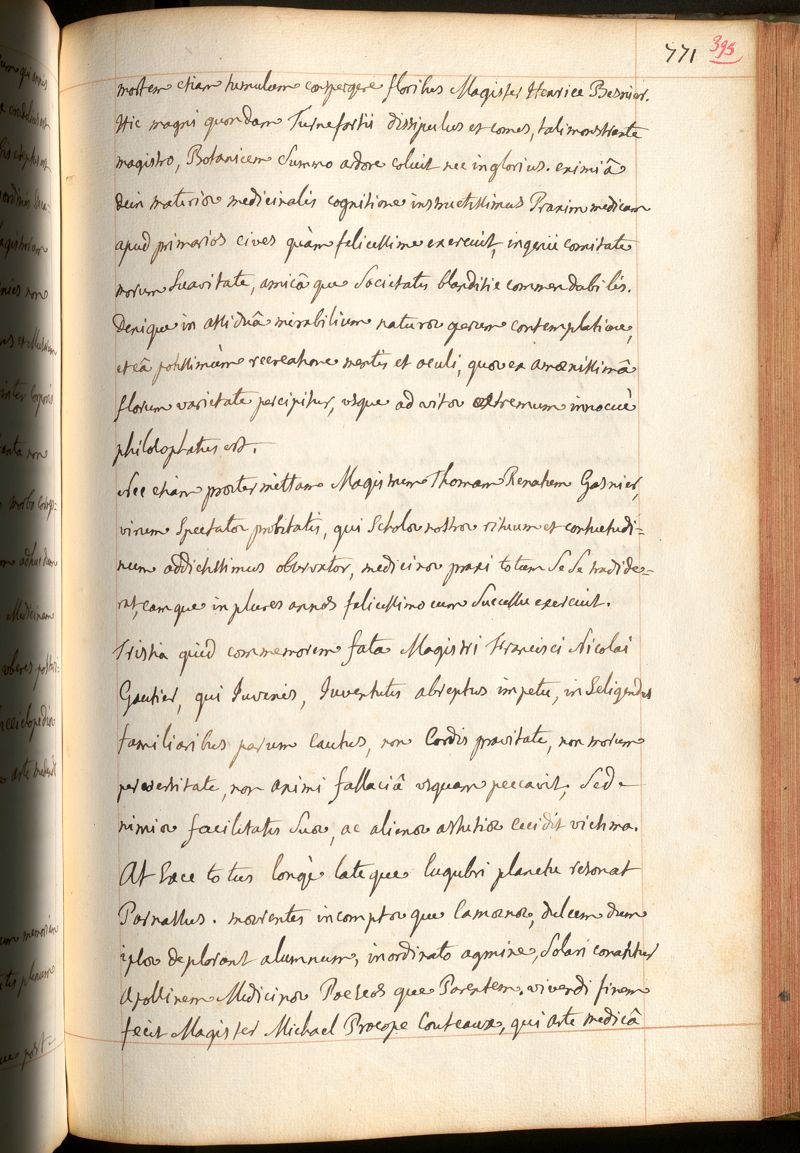 771 395
mortem etiam tumulum conspergere floribus Magister Henrice Besnier.
Hic magni quondam Turnefortii dissipulus et comes, tali monstrante
magistro, Botanicem summo adore coluit nec inglorius. eximiâ
dein materiæ medicinalis cognitione instructissimus Praxim medicam
apud primarios cives quàm felicissime exercuit, ingenii comitate
morum suavitate, amicâ que societatis blanditie commendabilis.
Denique in assiduâ mirabilium naturæ operum contemplatione,
et eâ potissimùm recreatione mentis et oculi, quæ ex amœnissimâ
florum varietate percipitur, usque ad vitæ extremum innocuè
philosophatus est.
Nec etiam prætermittam Magistrum Thomam Renatum Gasnier,
virum spectatæ probitatis, qui Scholæ nostræ rituum et consuetudi=
num addictissimus observator, medicinæ praxi totum se se tradide=
rat, eamque in plures annos felicissimo cum successu exercuit.
Tristia quid commemorem fata Magistri Francisci Nicolai
Gautier, qui Juvenis, Juventutis abreptus impetu, in seligendis
familiaribus parum cautus, non Cordis pravitate, non morum
perversitate, non animi fallaciâ usquam peccavit, sed
nimiæ facilitatis suæ, ac alienæ astutiæ cecidit victima.
At Ecce totus longè lateque lugubri planctu resonat
Parnassus. mœrentes incomptæ que Camœnæ, dulcem dum
ipsæ deplorant alumnum, inordinato agmine, solari conantur
Apollinem Medicinæ Poeseos que Parentem. vivendi finem
fecit Magister Michael Procope Couteaux, qui arte medicâ